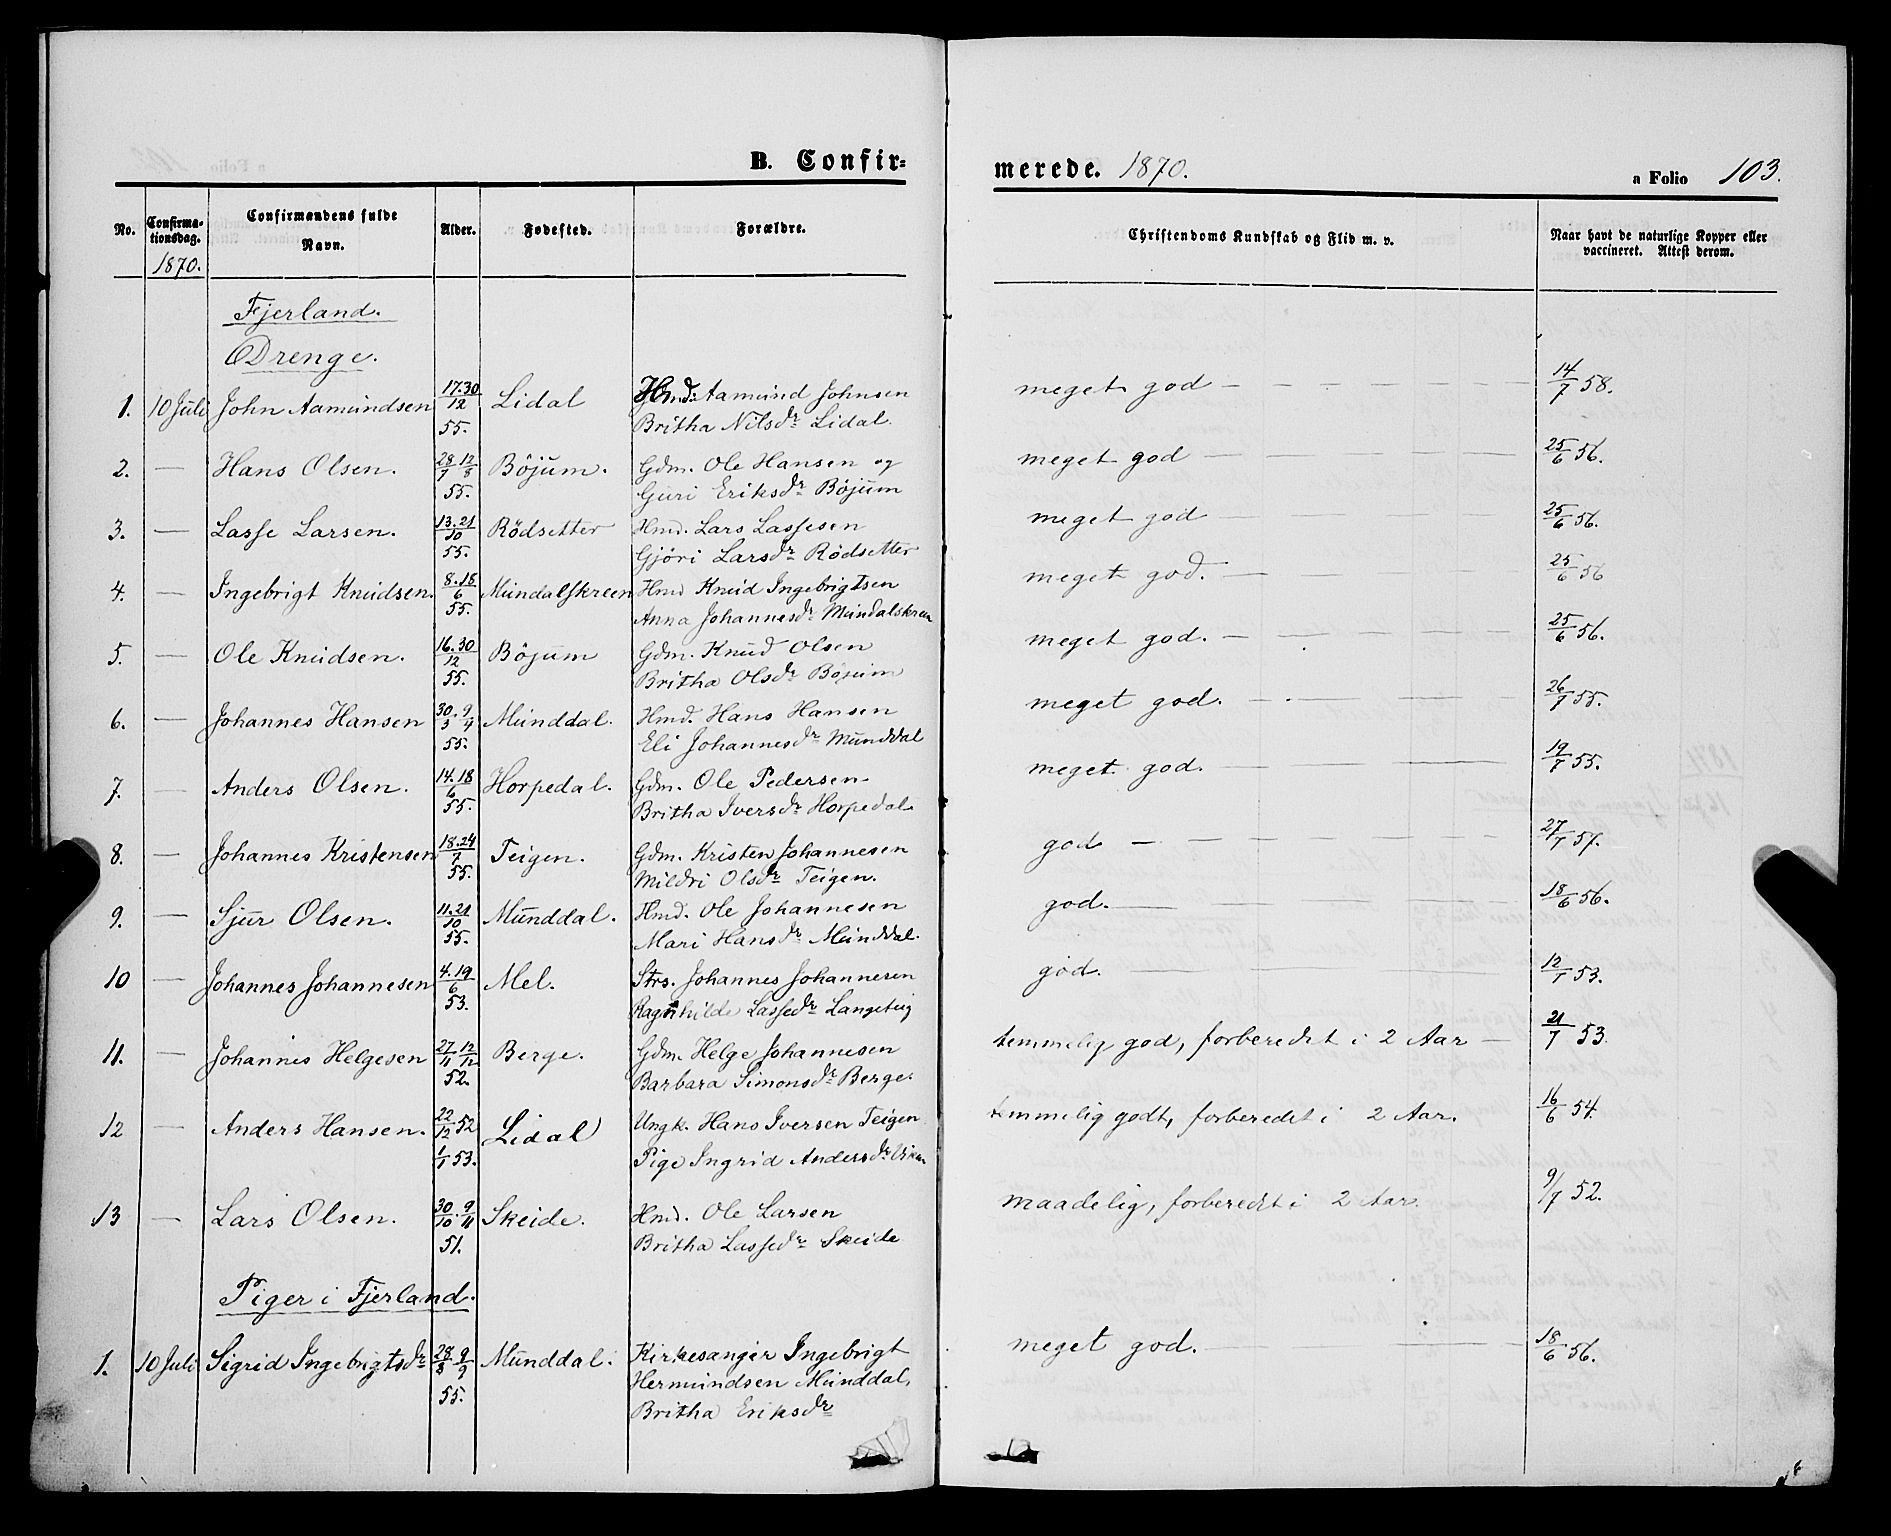 B. Confir-
merede. 1870.
a Folio 103.
No. Confirma-tionsdag. Confirmandens fulde Navn. Alder. Fødested. Forældre. Christendoms Kundskab og Flid m. v. Naar havt de naturlige Kopper eller vaccineret. Attest derom.
1870.
Fjerland.
Drenge.
1. 10 Juli John Aamundsen 17.30/12 55. Lidal Hmd. Aamund Johnsen meget god — 14/7 58.
Britha Nilsdr Lidal.
2. — Hans Olsen. 28/7 12/8 55. Böjum. Gdm. Ole Hansen og meget god — 25/6 56.
Guri Eriksdr Böjum
3. — Lasse Larsen. 13.21/10 55. Rödsetter Hmd. Lars Lassesen meget god — 25/6 56.
Gjöri Larsdr Rödsetter
4. — Ingebrigt Knudsen. 8.18/6 55. Mundalskreen Hmd Knud Ingebrigtsen meget god. — 25/6 56
Anna Johannesdr Mundalskreen
5. — Ole Knudsen. 16.30/12 55. Böjum Gdm. Knud Olsen meget god. — 25/6 56.
Britha Olsdr Böjum
6. — Johannes Hansen 30/3. 9/4 55. Munddal. Hmd. Hans Hansen meget god. — 26/7 55.
Eli Johannesdr Munddal
7. — Anders Olsen. 14.18/6 55. Horpedal. Gdm. Ole Pedersen meget god. — 19/7 55.
Britha Iversdr Horpedal
8. — Johannes Kristensen 18.24/7 55. Teigen. Gdm. Kristen Johannesen god — 27/7 57.
Mildri Olsdr Teigen.
9. — Sjur Olsen. 11.21/10 55. Munddal. Hmd. Ole Johannesen god. — 18/6 56.
Mari Hansdr Munddal.
10 — Johannes Johannesen 4.19/6 53. Mel. Strs. Johannes Johannesen god. — 12/7 53.
Ragnhilde Lassedr Langeteig
11. — Johannes Helgesen 27/11 12/12 52. Berge. Gdm. Helge Johannesen temmelig god, forberedet i 2 Aar — 21/7 53.
Barbara Simonsdr Berge.
12 — Anders Hansen. 22/12 52 1/1 53. Lidal Ungk. Hans Iversen Teigen temmelig godt, forberedet i 2 Aar. 16/6 54.
Pige Ingrid Andersdr
13 — Lars Olsen. 30/10. 9/11 51. Skeide. Hmd. Ole Larsen maadelig, forberedet i 2 Aar. 9/7 52.
Britha Lassedr Skeide
Piger i Fjerland.
1. 10 Juli Sigrid Ingebrigtsdr 28/8 9/9 55. Munddal. Kirkesanger Ingebrigt meget god. — 18/6 56.
Hermundsen Munddal,
Britha Eriksdr